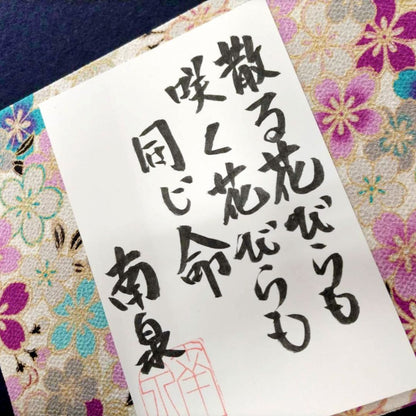 散る花びらも
咲く花びらも
同じ命
南泉